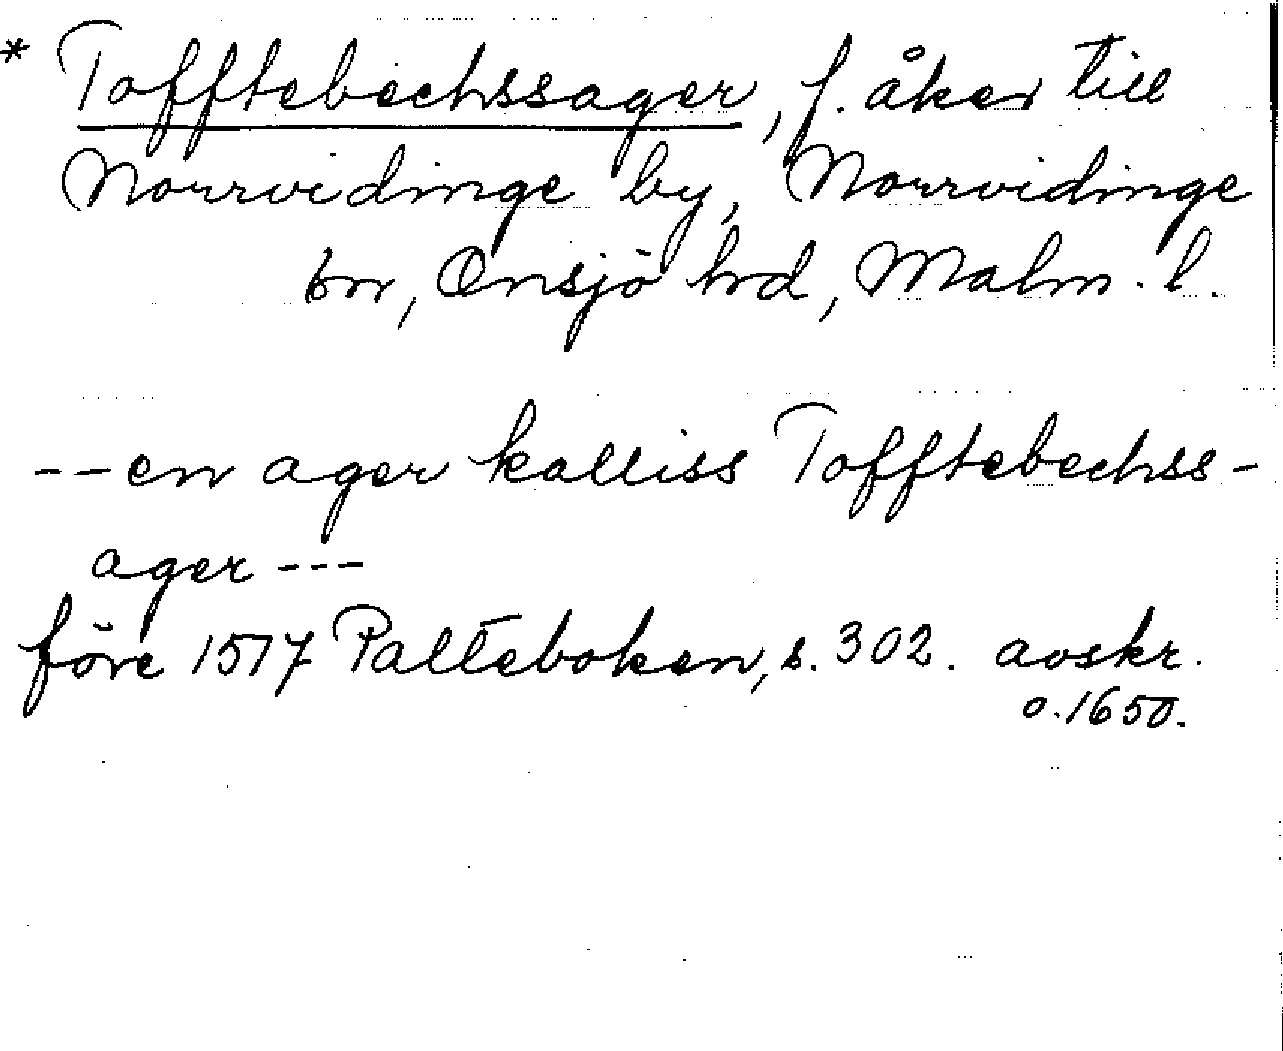 * Tofftebechssager, f. åker till
Norrvidinge by, Norrvidinge
sn, Onsjö hd, Malm. l.
--en ager kalliss Tofftebechss-
ager ---
före 1517 Palteboken, s. 302. avskr.
o. 1650.